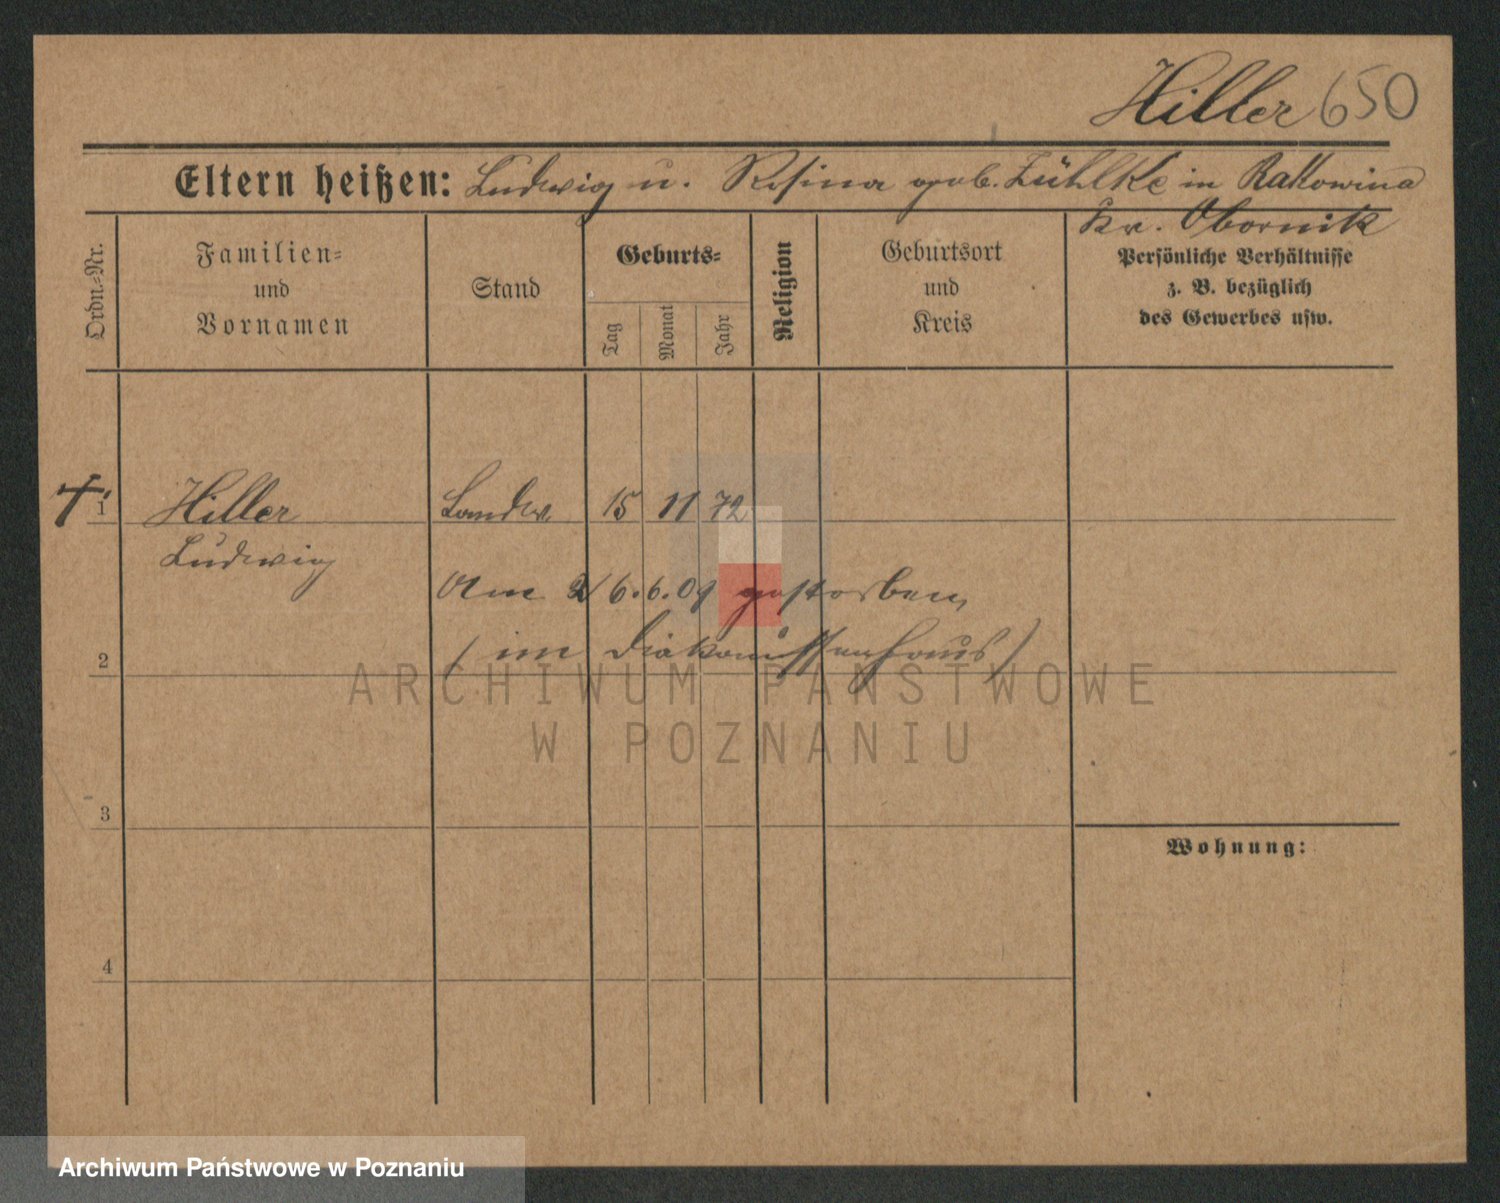 Hiller 650
Eltern heißen: Ludwig u. Rosina geb. Zühlke in Rakowina
Kr. Obornik
Ordn.-Nr.
Familien-
und
Vornamen
Stand
Geburts-
Tag
Monat
Jahr
Religion
Geburtsort
und
Kreis
Persönliche Verhältnisse
z. B. bezüglich
des Gewerbes usw.
1 Hiller Landw. 15 11 72
Ludwig
Am 6. 6. 09 gestorben
2 (im Diakonissenhaus)
ARCHIWUM PAŃSTWOWE
W POZNANIU
3
Wohnung:
4
Archiwum Państwowe w Poznaniu